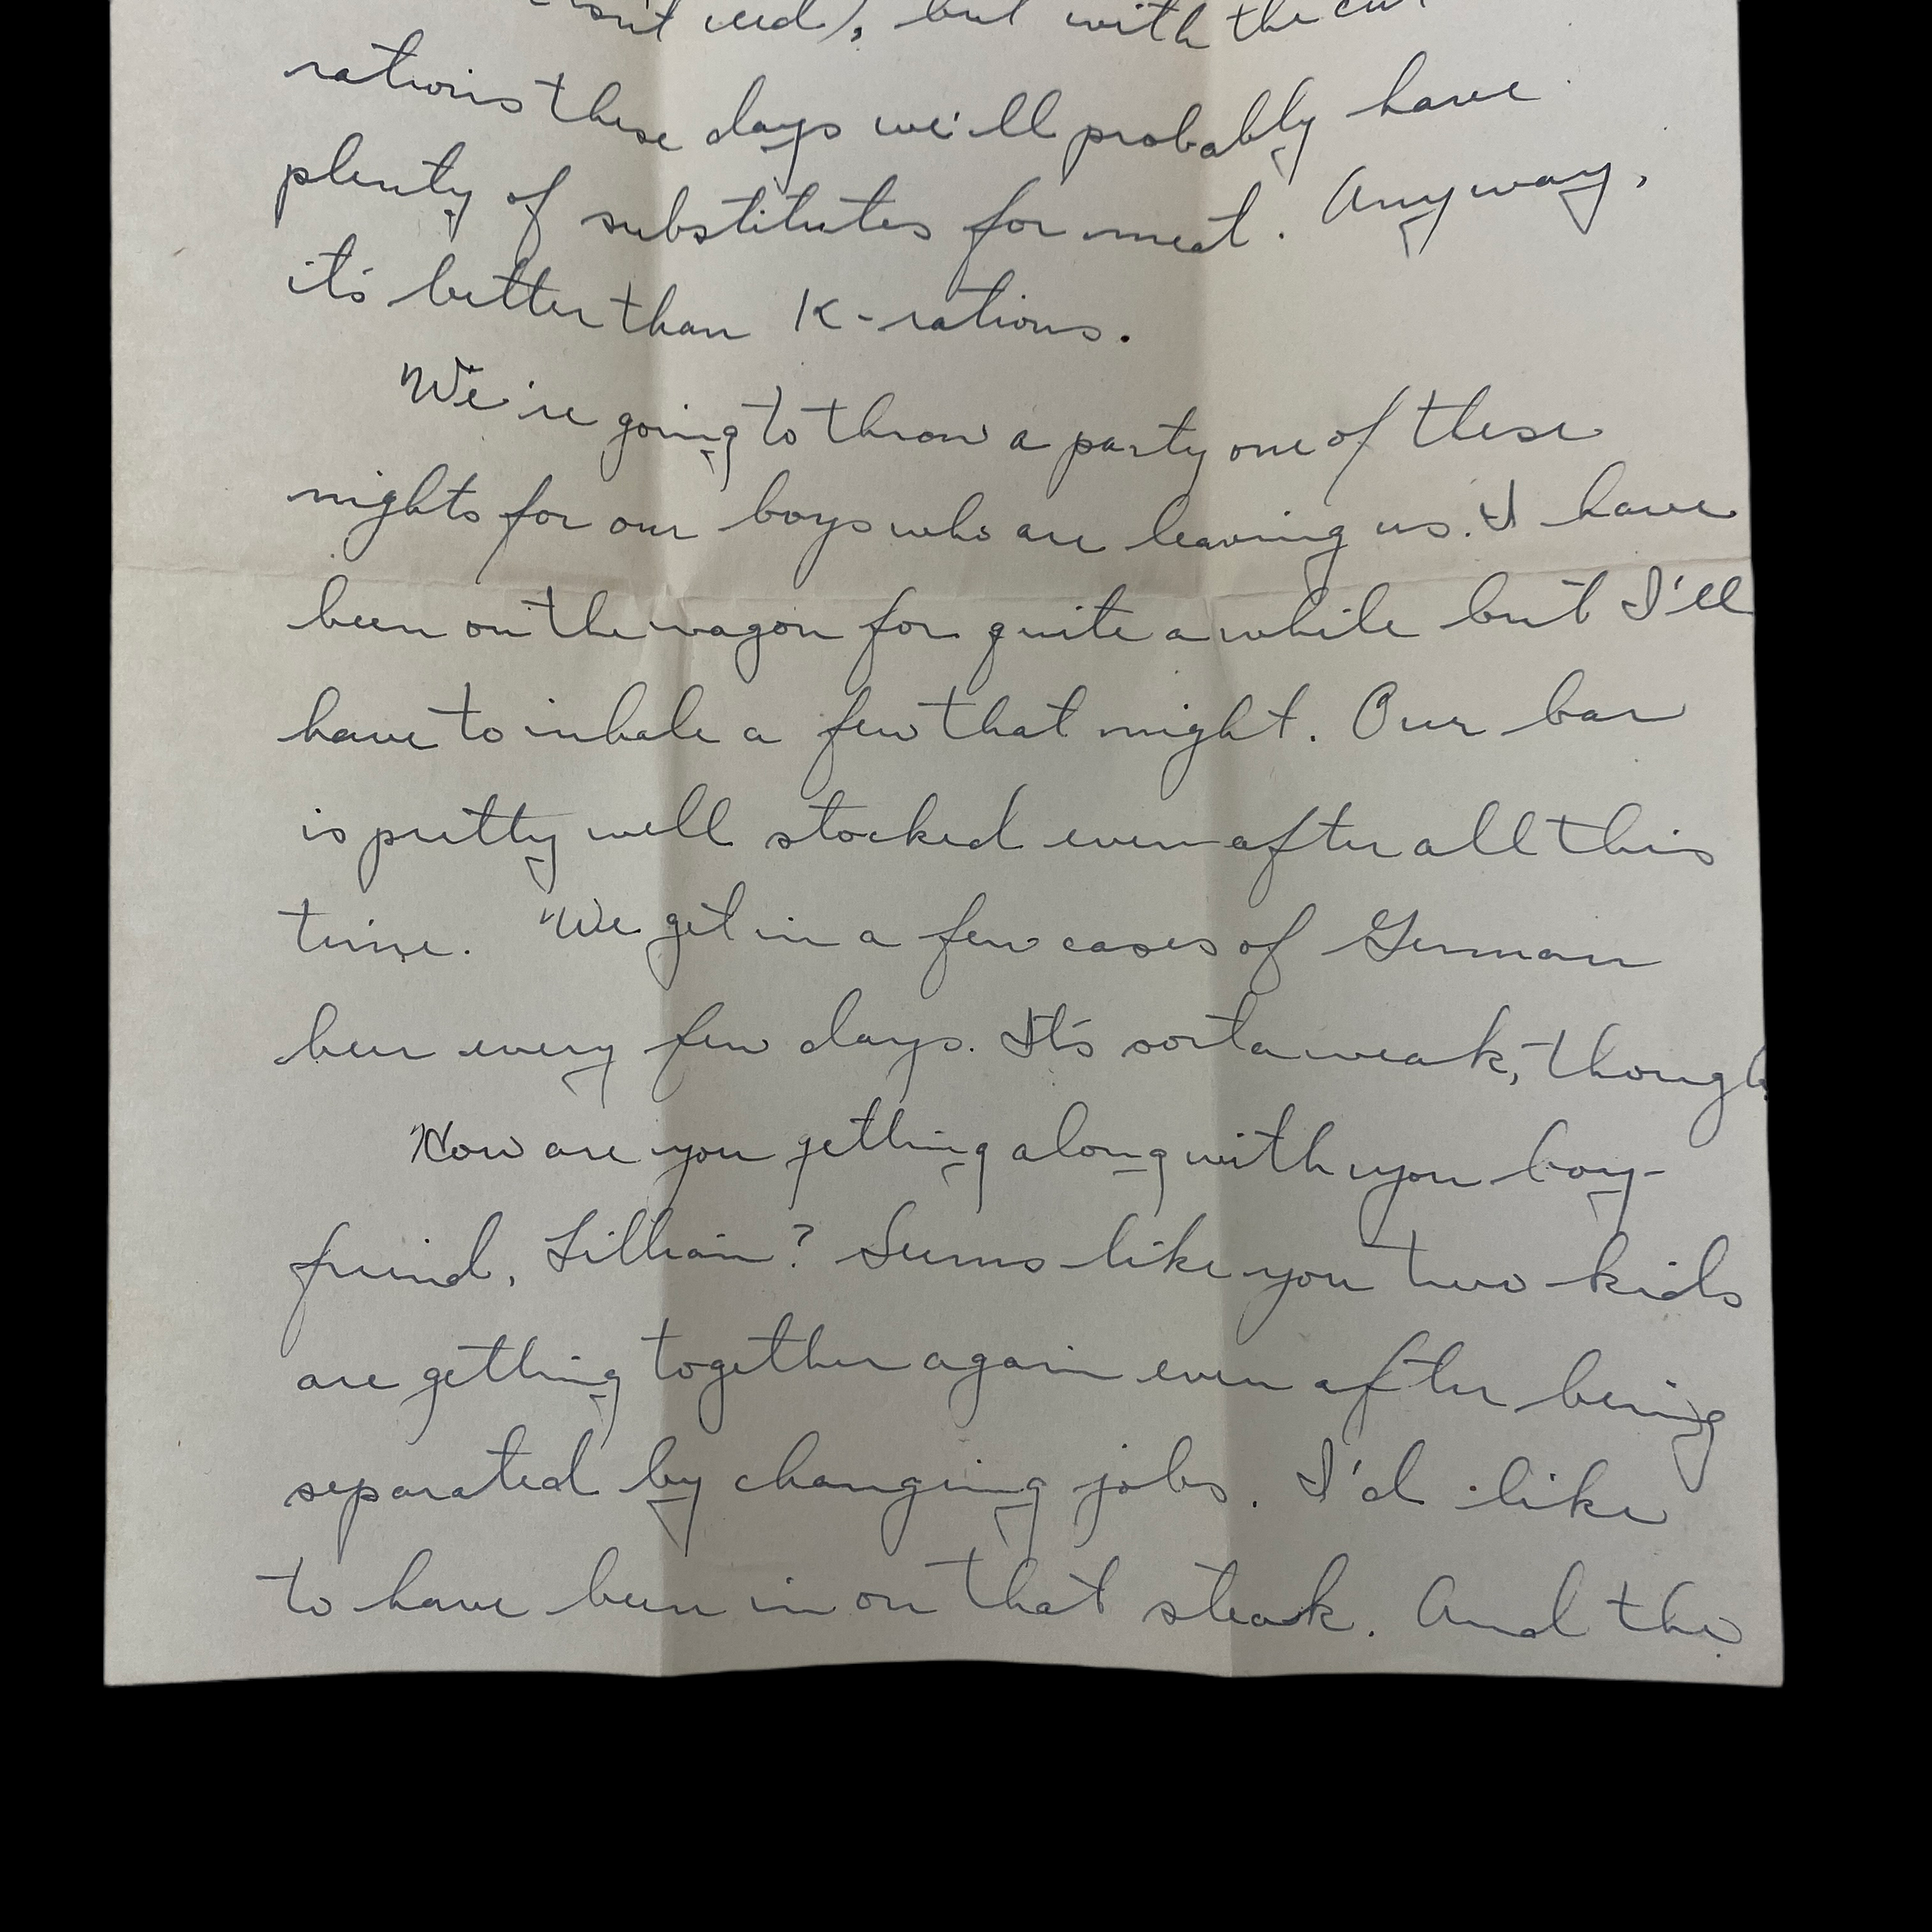 but with the
rations these days we'll probably have
plenty of substitutes for meat. Anyway,
it's better than K-rations.
We're going to throw a party one of these
nights for our boys who are leaving us. I have
been on the wagon for quite a while but I'll
have to inhale a few that night. Our bar
is pretty well stocked even after all this
time. We get in a few cases of German
beer every few days. It's sorta weak, though.
How are you getting along with you boy-
friend, Lillian? Seems like you two kids
are getting together again even after being
separated by changing jobs. I'd like
to have been in on that steak. And the